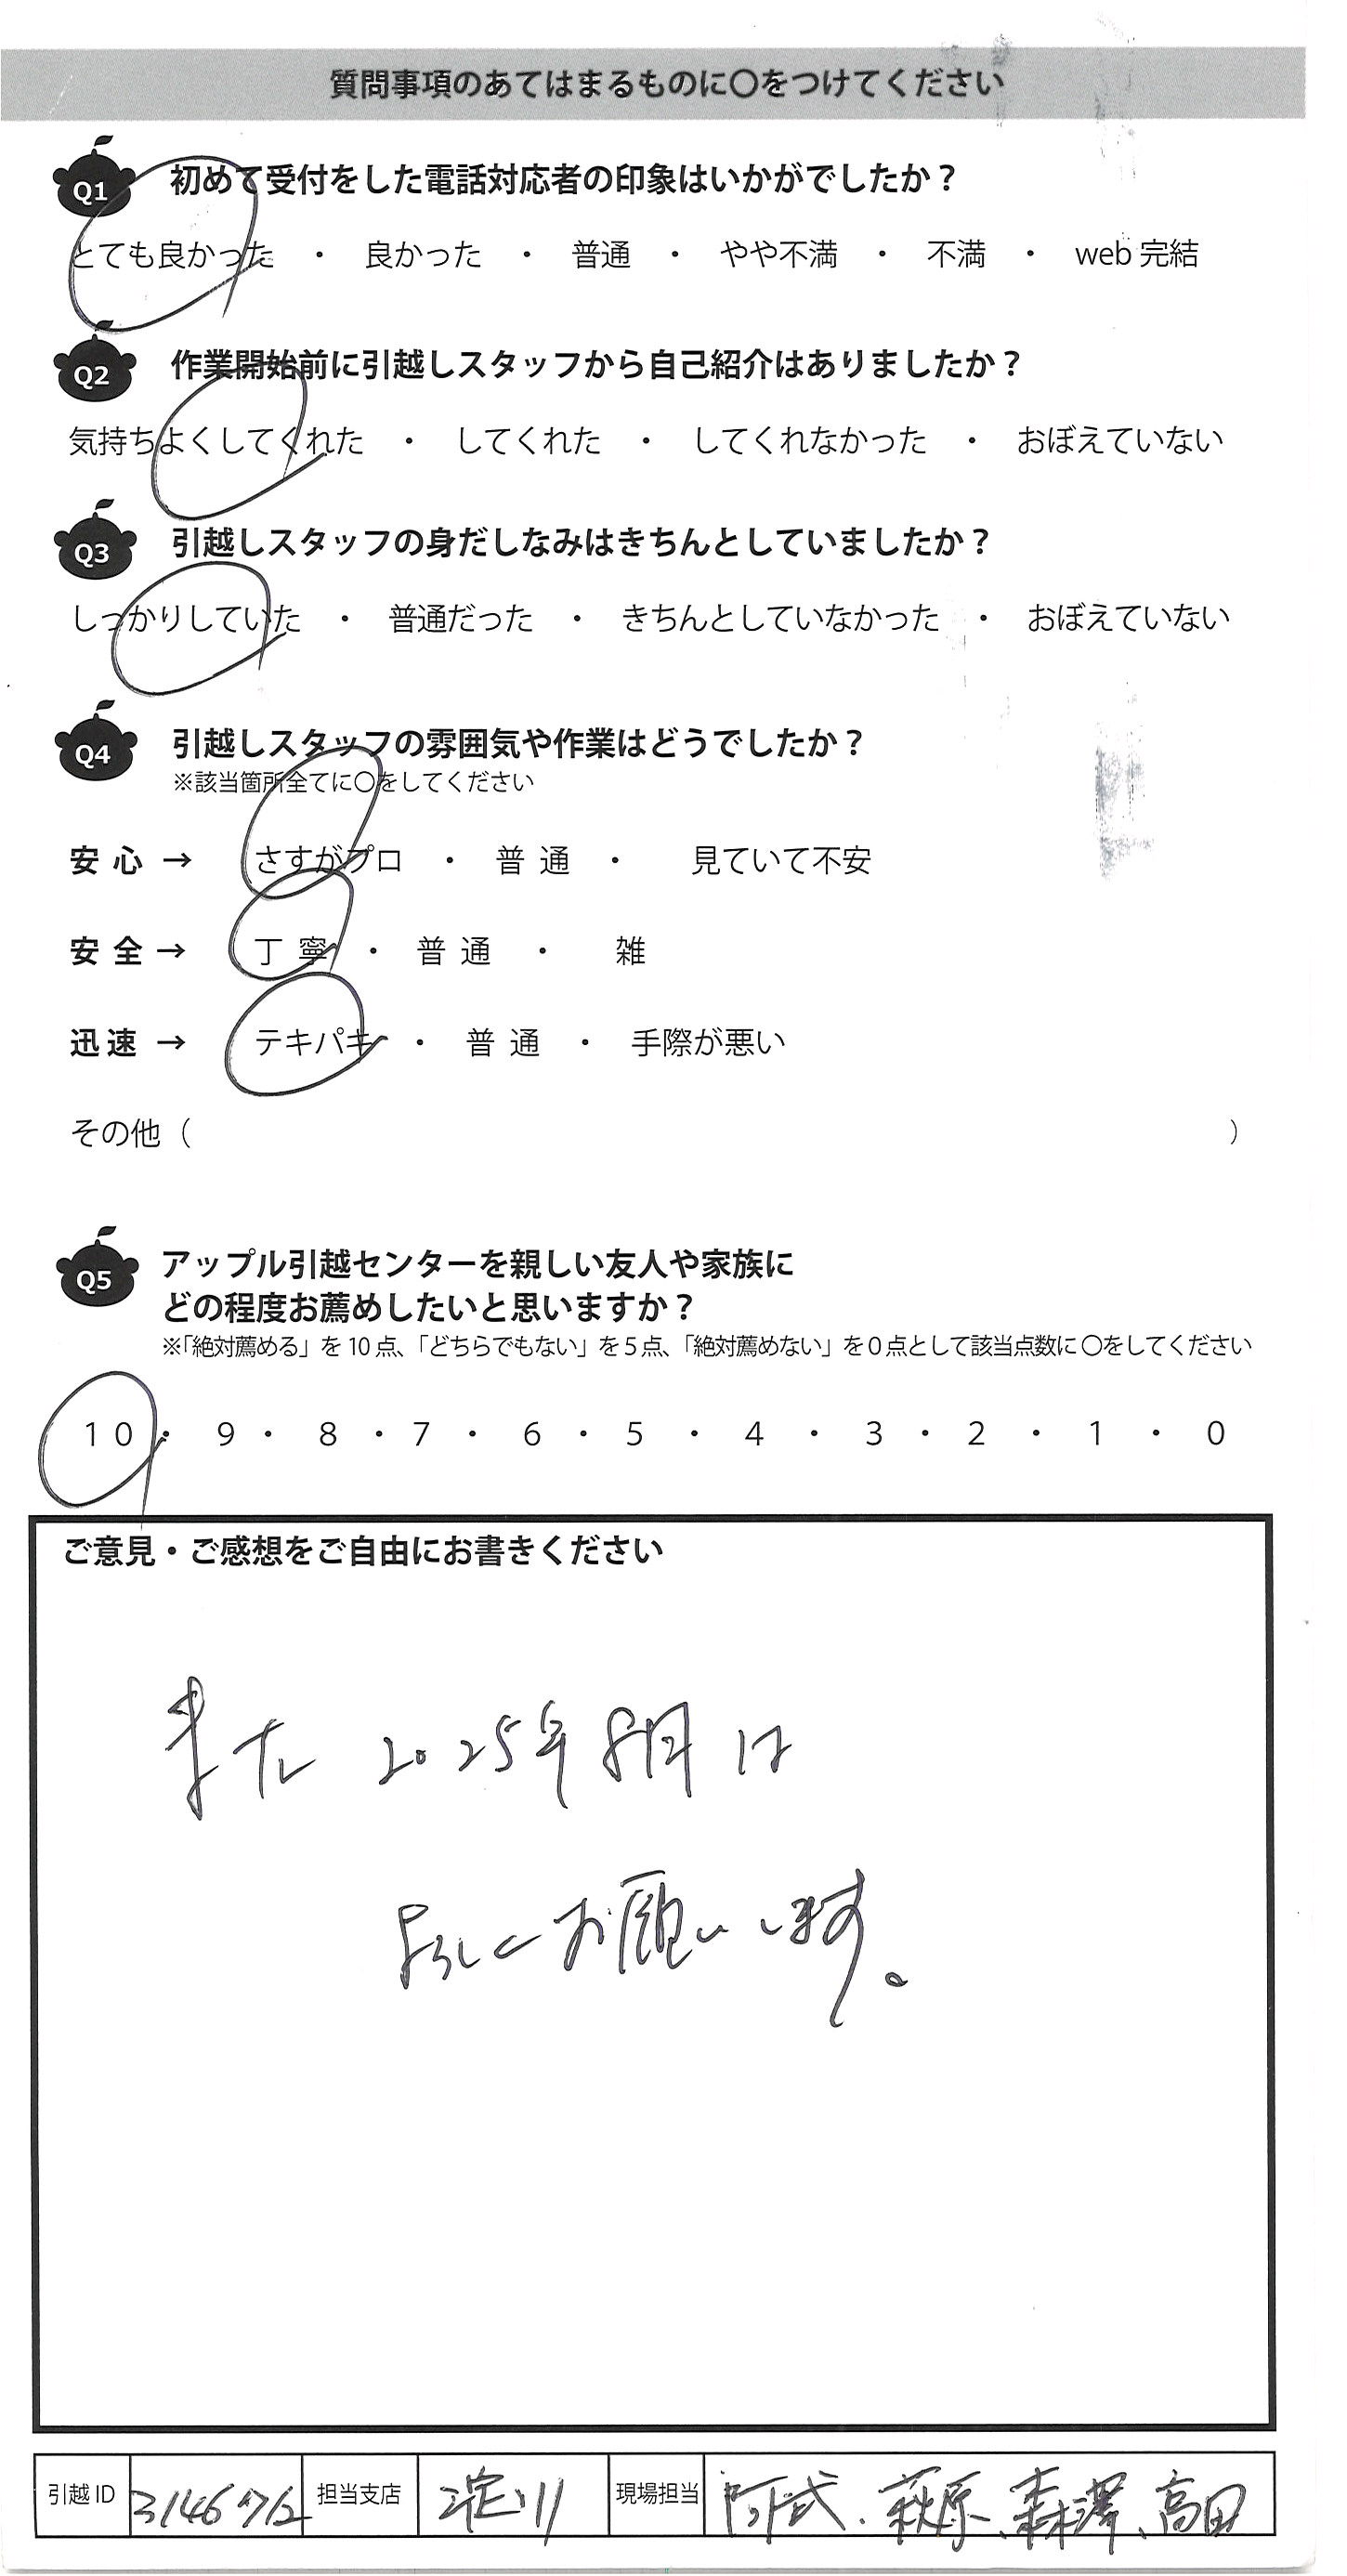 質問事項のあてはまるものに〇をつけてください
Q1 初めて受付をした電話対応者の印象はいかがでしたか？
とても良かった ・ 良かった ・ 普通 ・ やや不満 ・ 不満 ・ web 完結
Q2 作業開始前に引越しスタッフから自己紹介はありましたか？
気持ちよくしてくれた ・ してくれた ・ してくれなかった ・ おぼえていない
Q3 引越しスタッフの身だしなみはきちんとしていましたか？
しっかりしていた ・ 普通だった ・ きちんとしていなかった ・ おぼえていない
Q4 引越しスタッフの雰囲気や作業はどうでしたか？
※該当箇所全てに〇をしてください
安心 → さすがプロ ・ 普通 ・ 見ていて不安
安全 → 丁寧 ・ 普通 ・ 雑
迅速 → テキパキ ・ 普通 ・ 手際が悪い
その他（ ）
Q5 アップル引越センターを親しい友人や家族に
どの程度お薦めしたいと思いますか？
※「絶対薦める」を10点、「どちらでもない」を5点、「絶対薦めない」を0点として該当点数に〇をしてください
10 ・ 9 ・ 8 ・ 7 ・ 6 ・ 5 ・ 4 ・ 3 ・ 2 ・ 1 ・ 0
ご意見・ご感想をご自由にお書きください
また 2025年8月は
よろしくお願いします。
引越ID 3146762 担当支店 淀川 現場担当 萩原、森澤、高田